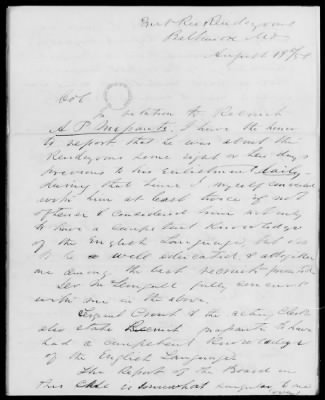 Rendezvous
Baltimore Md
August 18th/54
Col
In relation to Recruit
A P I have the honor
to report that he was about the
Rendezvous some eight or ten days
previous to his Enlistment daily
during that time I myself conversed
with him at least twice if not
oftener & considered him not only
to have a competent Knowledge
of the English Language, but also
to be a well educated, & altogether
one among the best recruits presented
fully concur
with me in the above.
Sergeant & the acting Clerk
also state Recruit to have
had a competent Knowledge
of the English Language
The Report of the Board in
this Case is somewhat singular to me